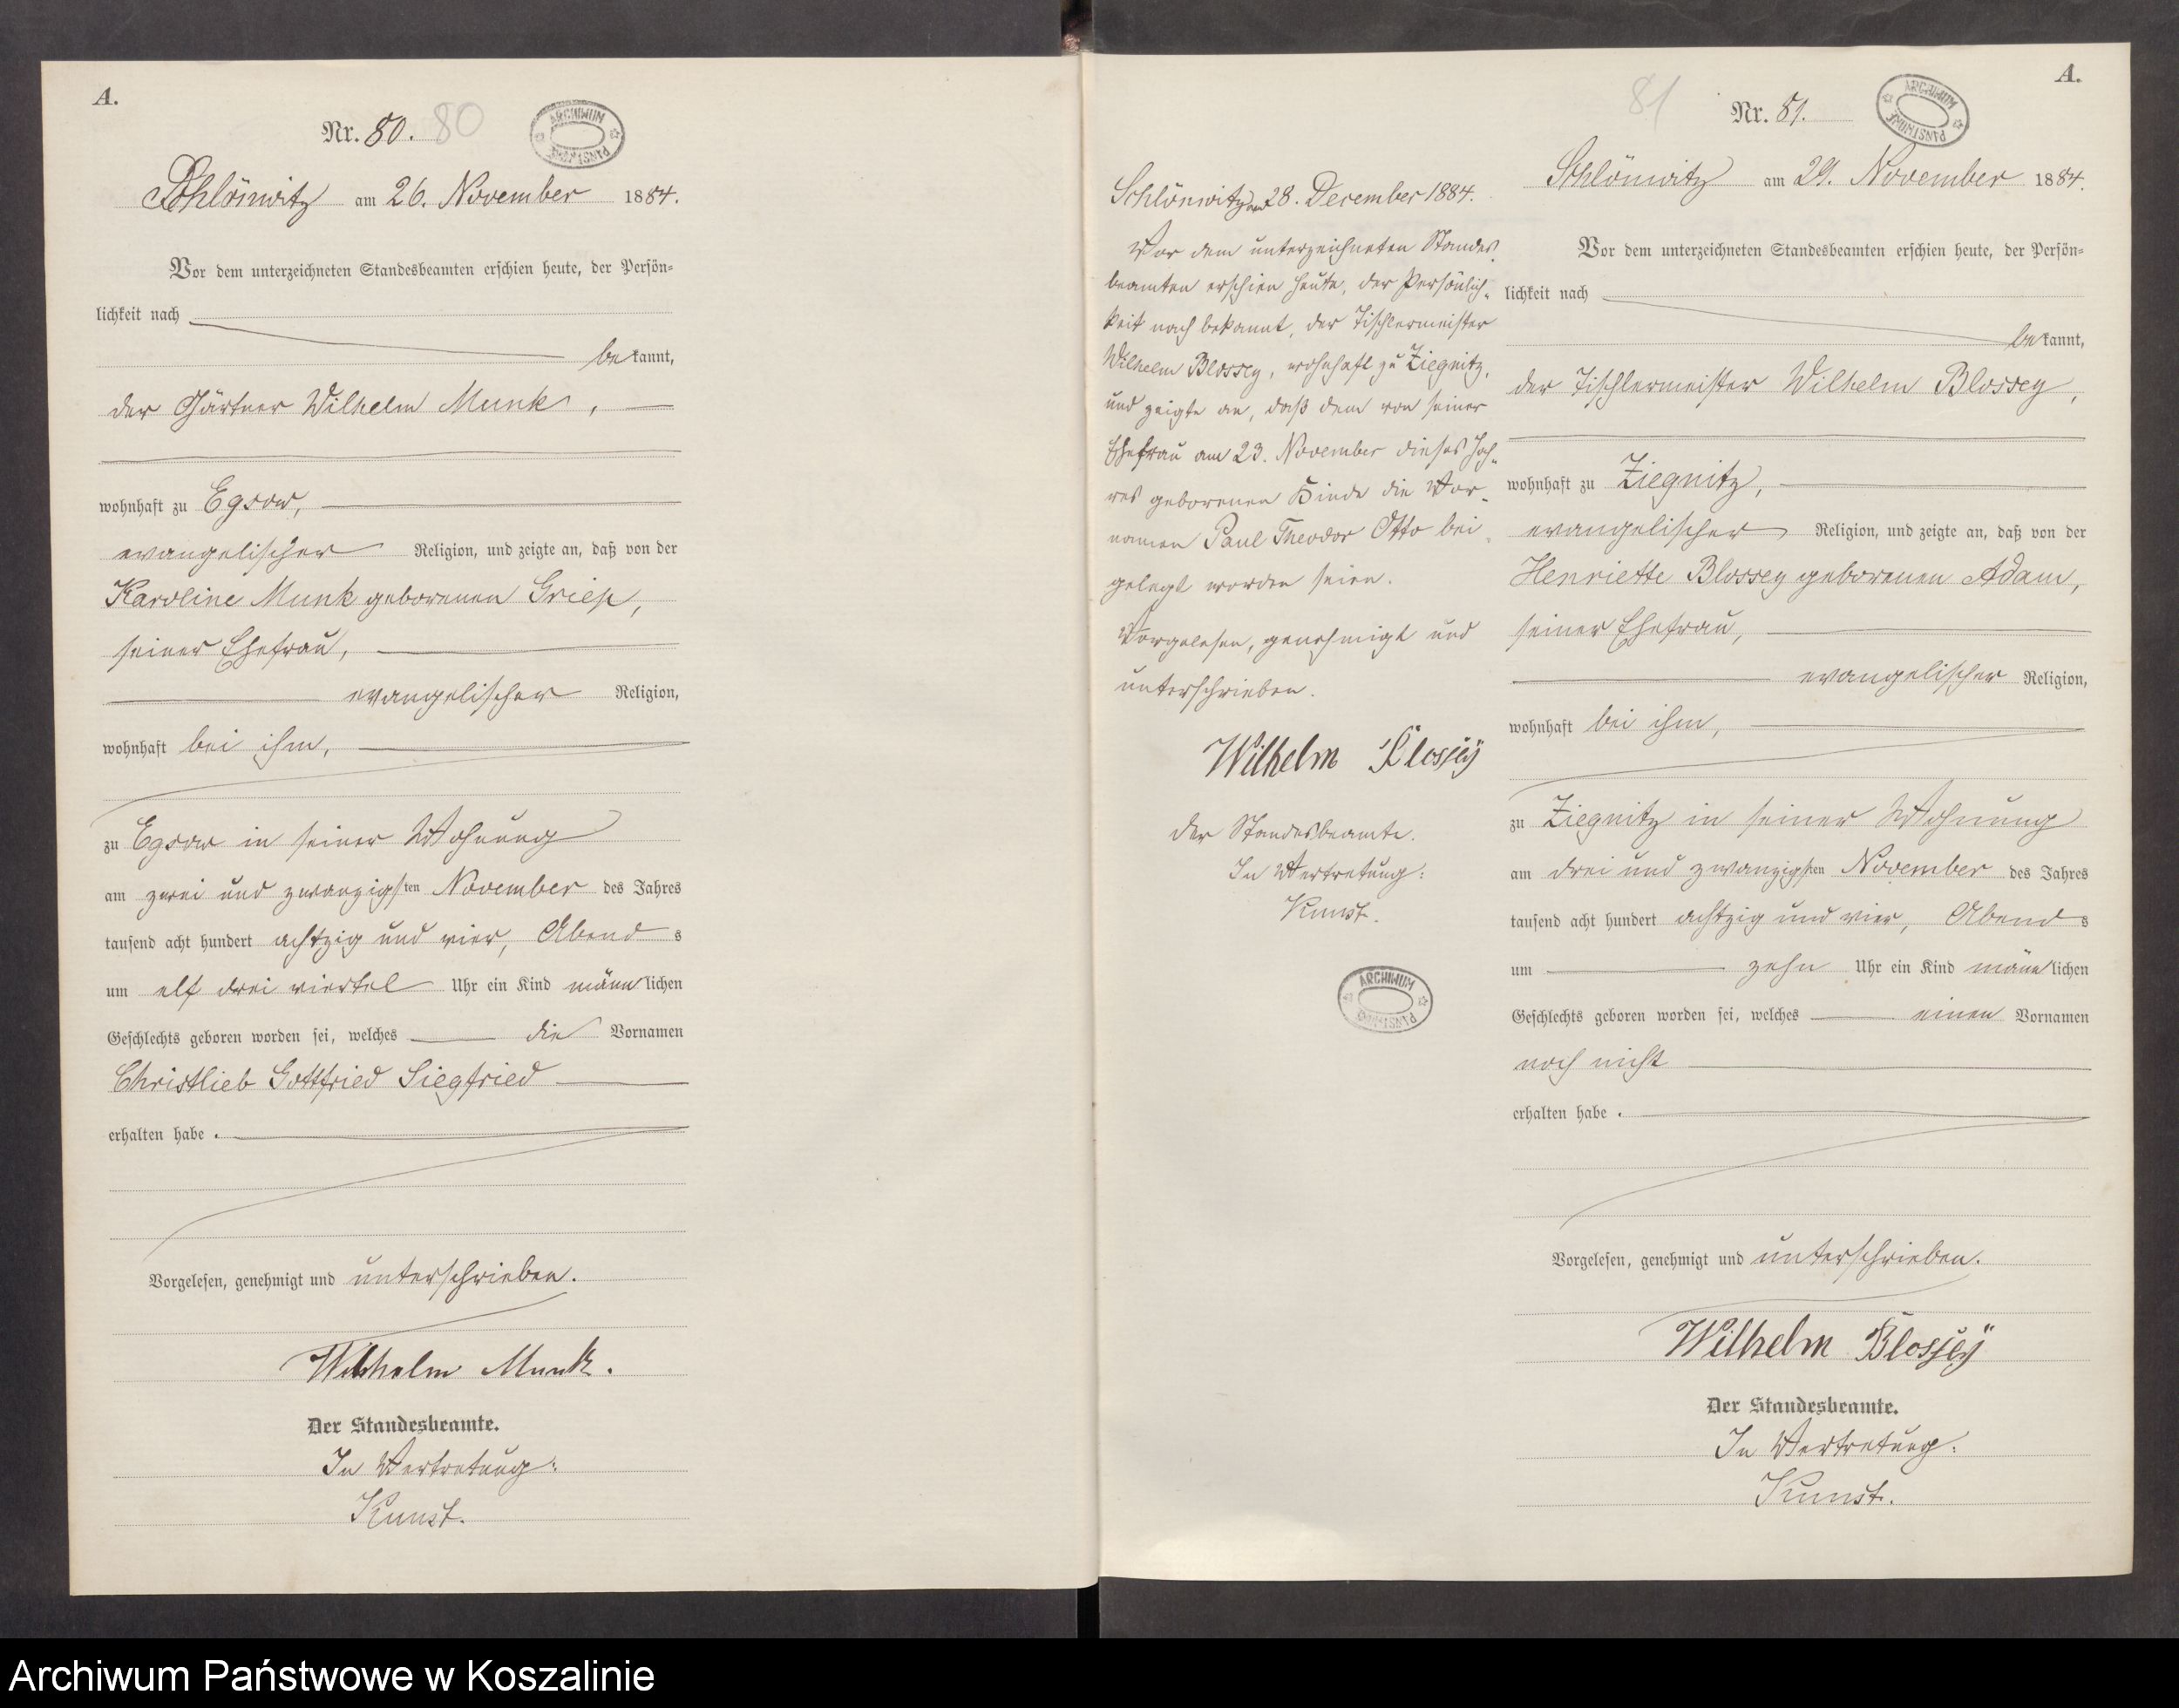 A.
Nr. 80. 80
ARCHIWUM PAŃSTWOWE
Schlönwitz am 26. November 1884.
Vor dem unterzeichneten Standesbeamten erschien heute, der Persön-
lichkeit nach
bekannt,
der Gärtner Wilhelm Munk,
wohnhaft zu Egsow,
evangelischer Religion, und zeigte an, daß von der
Karoline Munk geborenen Griep,
seiner Ehefrau,
evangelischer Religion,
wohnhaft bei ihm,
zu Egsow in seiner Wohnung
am zwei und zwanzigsten November des Jahres
tausend acht hundert achtzig und vier, Abends
um elf drei viertel Uhr ein Kind männlichen
Geschlechts geboren worden sei, welches die Vornamen
Christlieb Gottfried Siegfried
erhalten habe.
Vorgelesen, genehmigt und unterschrieben.
Wilhelm Munk.
Der Standesbeamte.
In Vertretung:
Kunst.
Schlönwitz am 28. December 1884.
Vor dem unterzeichneten Standes-
beamten erschien heute, der Persönlich-
keit nach bekannt, der Tischlermeister
Wilhelm Blossey, wohnhaft zu Ziegnitz,
und zeigte an, daß dem von seiner
Ehefrau am 23. November dieses Jah-
res geborenen Kinde die Vor-
namen Paul Theodor Otto bei-
gelegt worden seien.
Vorgelesen, genehmigt und
unterschrieben.
Wilhelm Blossey
Der Standesbeamte.
In Vertretung:
Kunst.
ARCHIWUM PAŃSTWOWE
A.
81 Nr. 81.
ARCHIWUM PAŃSTWOWE
Schlönwitz am 29. November 1884.
Vor dem unterzeichneten Standesbeamten erschien heute, der Persön-
lichkeit nach
bekannt,
der Tischlermeister Wilhelm Blossey,
wohnhaft zu Ziegnitz,
evangelischer Religion, und zeigte an, daß von der
Henriette Blossey geborenen Adam,
seiner Ehefrau,
evangelischer Religion,
wohnhaft bei ihm,
zu Ziegnitz in seiner Wohnung
am drei und zwanzigsten November des Jahres
tausend acht hundert achtzig und vier, Abends
um zehn Uhr ein Kind männlichen
Geschlechts geboren worden sei, welches einen Vornamen
noch nicht
erhalten habe.
Vorgelesen, genehmigt und unterschrieben.
Wilhelm Blossey
Der Standesbeamte.
In Vertretung:
Kunst.
Archiwum Państwowe w Koszalinie